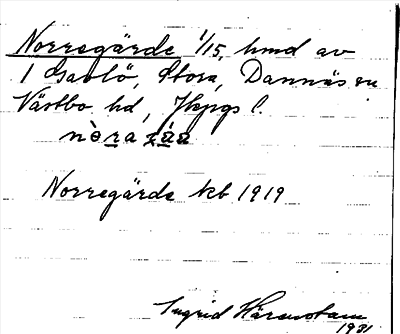 Norregärde 1/15, hmd av
1 Gavlö, Stora, Dannäs sn
Västbo hd, Jkpgs l.

Norregärde kb 1919
Ingrid Härenstam
1931